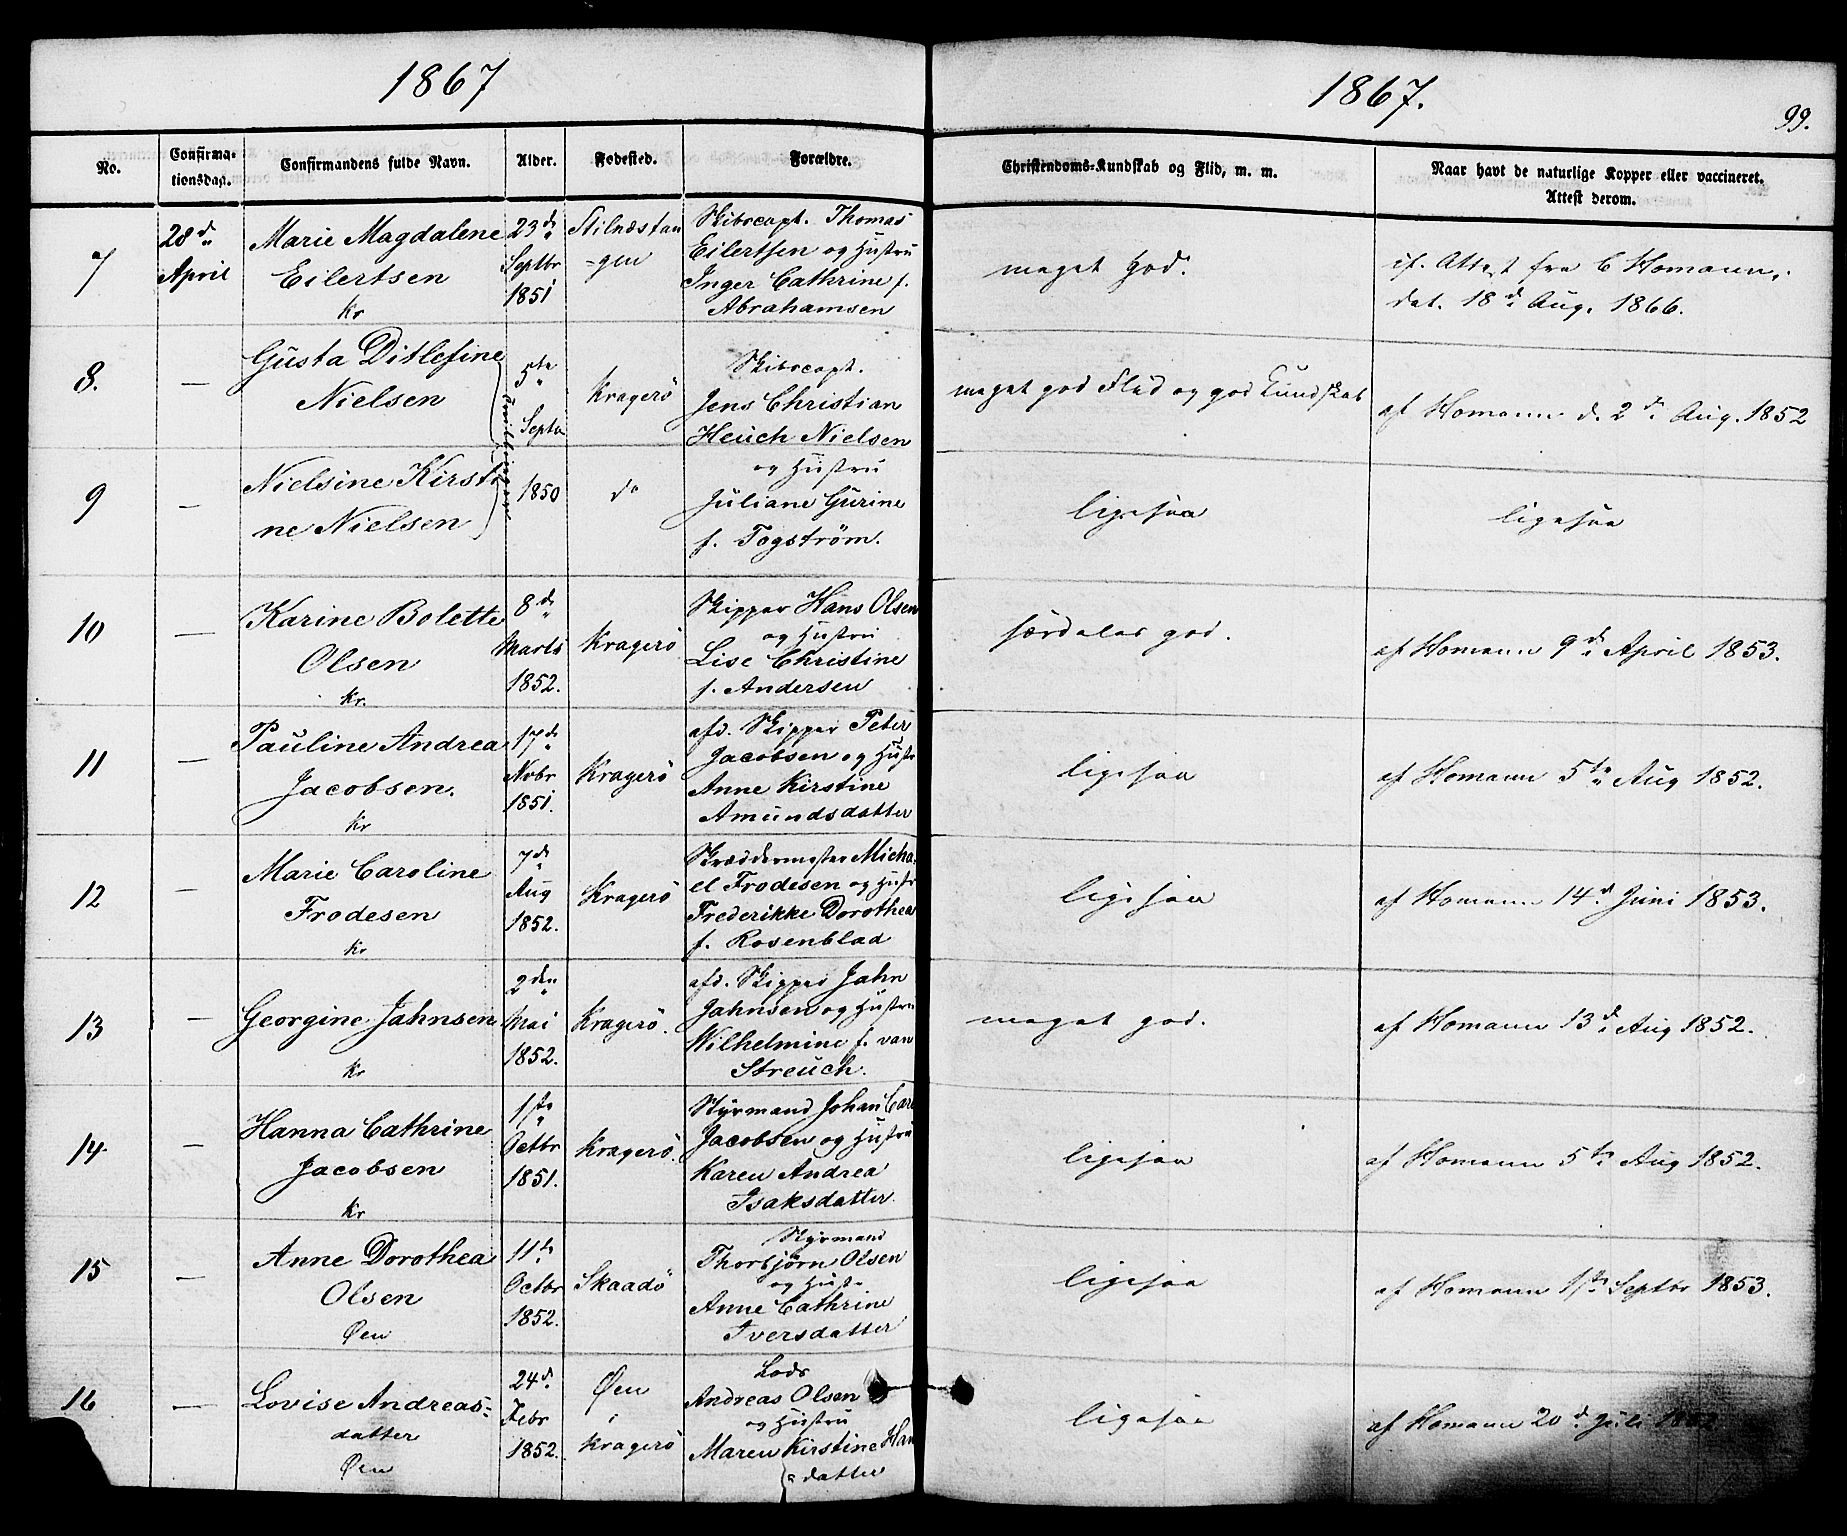 1867
No.
Confirma-
tionsdag.
Confirmandens fulde Navn.
Alder.
Fødested.
Forældre.
7
28d
April
Marie Magdalene
Eilertsen
Kr
23d
Septbr
1851
Stilnæstan
-gen
Skibscapt. Thomas
Eilertsen og Hustru
Inger Cathrine f.
Abrahamsen
8.
—
Gusta Ditlefine
Nielsen
5te
Septbr
Kragerö
Skibscapt.
Jens Christian
Heuch Nielsen
9
—
Nielsine Kirsti
ne Nielsen
Tvillinger
1850
do
og Hustru
Juliane Gurine
f. Fogström.
10
—
Karine Bolette
Olsen
Kr.
8d
Marts
1852.
Kragerö
Skipper Hans Olsen
og Hustru
Lise Christine
f. Andersen
11
—
Pauline Andrea
Jacobsen.
Kr
17d
Nobr
1851.
Kragerö
afd. Skipper Peter
Jacobsen og Hustr
Anne Kirstine
Amundsdatter
12
—
Marie Caroline
Frodesen
Kr
7d
Aug
1852.
Kragerö
Skræddermester Micha
el Frodesen og Hustr
Frederikke Dorothea
f. Rosenblad
13
—
Georgine Jahnsen
Kr
2den
Mai
1852.
Kragerö.
afd. Skipper Jahn
Jahnsen og Hustru
Wilhelmine f. van
Streuch.
14
—
Hanna Cathrine
Jacobsen
Kr
1ste
Octbr
1851.
Kragerö.
Styrmand Johan Carl
Jacobsen og Hustru
Karen Andrea
Isaksdatter
15
—
Anne Dorothea
Olsen
Øen
11te
Octbr
1852.
Skaadö
Styrmand
Thorbjörn Olsen
og Hustr
Anne Cathrine
Iversdatter
16
—
Lovise Andreas-
datter
Øen
24d
Febr
1852.
Øen
i
Kragerö
Lods
Andreas Olsen
og Hustru
Maren Kirstine Han
s datter
1867.
99.
Christendoms-Kundskab og Flid, m. m.
Naar havt de naturlige Kopper eller vaccineret.
Attest derom.
meget god.
if. Attest fra C Homann,
dat. 18d Aug. 1866.
meget god Flid og god Kundskab
af Homann d. 2d Aug. 1852
ligesaa
ligesaa
særdeles god.
af Homann 9d April 1853.
ligesaa
af Homann 5te Aug 1852.
ligesaa
af Homann 14d Juni 1853.
meget god.
af Homann 13d Aug 1852.
ligesaa
af Homann 5te Aug 1852.
ligesaa
af Homann 1ste Septbr 1853.
ligesaa
af Homann 20d Juli